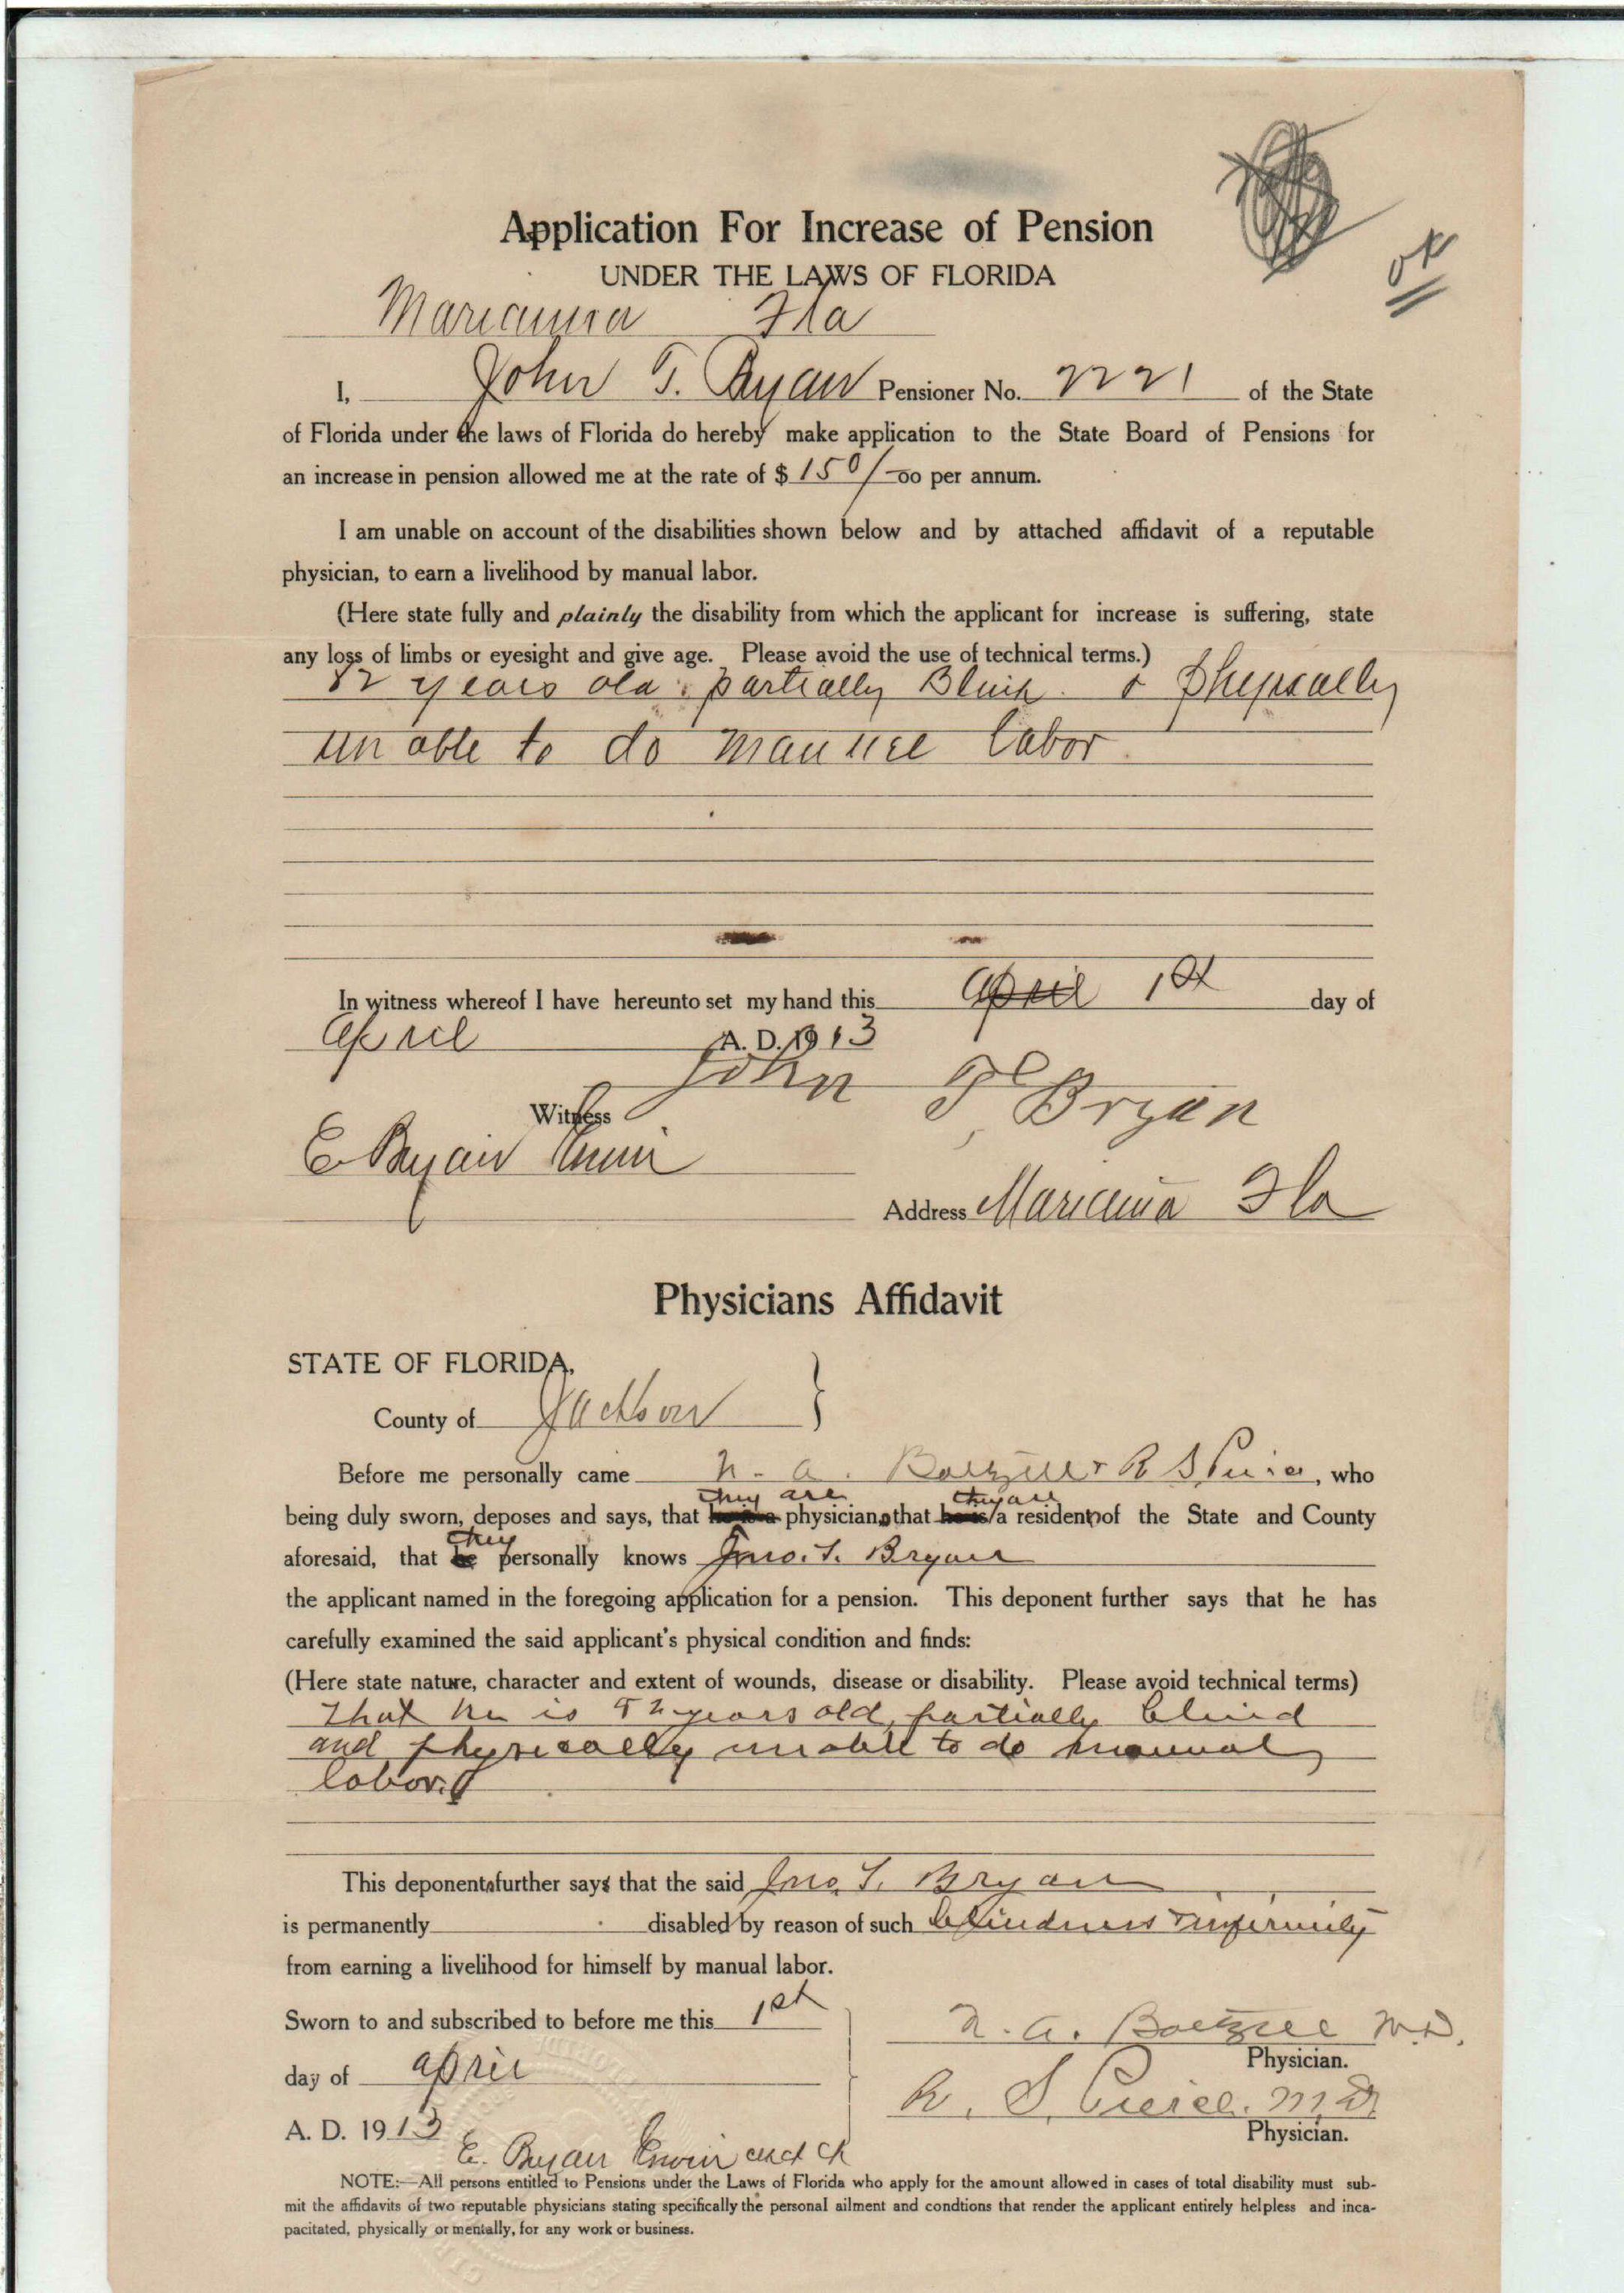 OK
Application For Increase of Pension
UNDER THE LAWS OF FLORIDA
Marianna Fla
I, John T. Bryan Pensioner No. 2221 of the State
of Florida under the laws of Florida do hereby make application to the State Board of Pensions for
an increase in pension allowed me at the rate of $ 150/00 per annum.
I am unable on account of the disabilities shown below and by attached affidavit of a reputable
physician, to earn a livelihood by manual labor.
(Here state fully and plainly the disability from which the applicant for increase is suffering, state
any loss of limbs or eyesight and give age. Please avoid the use of technical terms.)
82 years old, partially Blind & physically
unable to do manuel labor
In witness whereof I have hereunto set my hand this April 1st day of
April A. D. 1913
John T. Bryan
Witness
E Bryan Erwin
Address Marianna Fla
Physicians Affidavit
STATE OF FLORIDA,
County of Jackson }
Before me personally came N. A. Baltzell & R S Pierce, who
they are they are
being duly sworn, deposes and says, that he is a physicians that he is/a residents of the State and County
they
aforesaid, that he personally knows Jno. T. Bryan
the applicant named in the foregoing application for a pension. This deponent further says that he has
carefully examined the said applicant's physical condition and finds:
(Here state nature, character and extent of wounds, disease or disability. Please avoid technical terms)
That he is 82 years old, partially blind
and physically unable to do manual
labor.
This deponents further says that the said Jno. T. Bryan
is permanently disabled by reason of such blindness & infirmity
from earning a livelihood for himself by manual labor.
Sworn to and subscribed to before me this 1st
N. A. Baltzell M.D.
Physician.
day of April
R. S. Pierce. M.D.
Physician.
A. D. 1913
E. Bryan Erwin clk ct ct
NOTE:—All persons entitled to Pensions under the Laws of Florida who apply for the amount allowed in cases of total disability must sub-
mit the affidavits of two reputable physicians stating specifically the personal ailment and condtions that render the applicant entirely helpless and inca-
pacitated, physically or mentally, for any work or business.